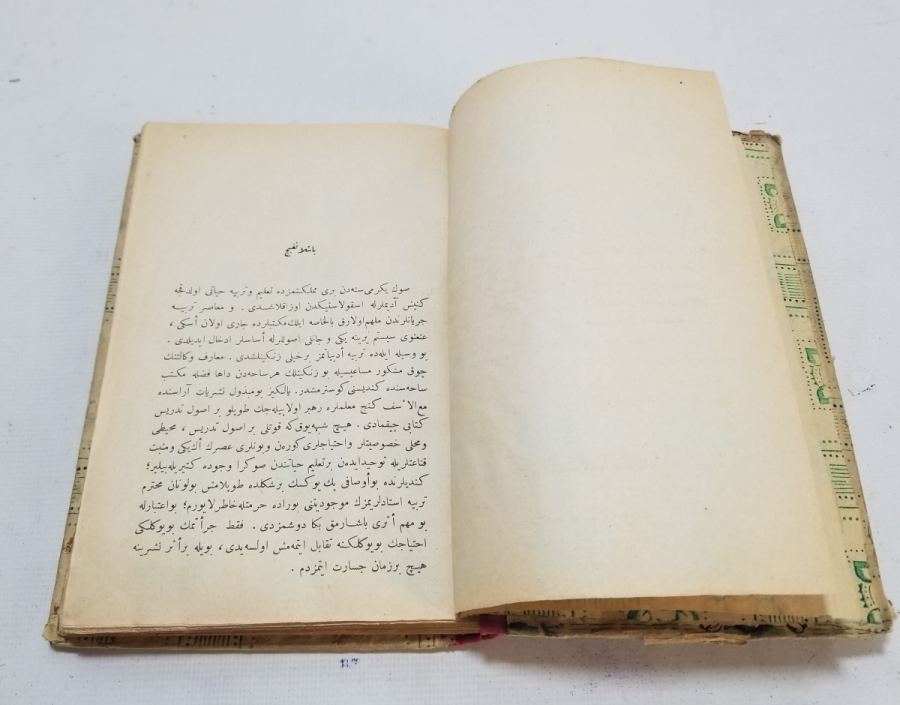 باشلانغیج
صوك یكرمی سنه‌دن بری مملكتمزده تعلیم و تربیه حیاتی اولدقجه
كنیش آدیملرله اسقولاستیكدن اوزاقلاشدی . و معاصر تربیــه
جریانلرندن ملهم اولارق بالخاصه ایلك مكتبلرده جاری اولان أسكی ،
عنعنوی سیستم یرینه یكی و جانلی اصوللرله أساسلر ادخال ایدیلدی .
بو وسیله ایله‌ده تربیه أدبیاتمز برخیلی زنكینلشدی . معارف وكالتنك
چوق مشكور مساعیسیله بو زنكینلك هرساحه‌دن داها فضله مكتب
ساحه‌سنده كندیسنی كوسترمشدر. یالكیز بومبذول نشریات آراسنده
مع الأسف كنج معلملره رهبر اولابیله‌جك طوپلو بر اصول تدریس
كتابی چیقمادی . هیچ شبهه یوق‌كه قوتلی بر اصول تدریس ، محیطی
و محلی خصوصیتلر و احتیاجلری كوره‌ن و بونلری عصرك أك یكی و مثبت
قناعتلریله توحید ایده‌ن برتعلیم حیاتندن صوكرا وجوده كتیریله‌بیلیر؛
كندیلرنده بو أوصافی پك یوكسك برشكلده طوپلامش بولونان محترم
تربیه استادلریمزك موجودیتنی بوراده حرمتله خاطرلایورم؛ بو اعتبارله
بو مهم أثری باشارمق بكا دوشمزدی . فقط جرأتمك بویوكلكی
احتیاجك بویوكلكنه تقابل ایتمه‌مش اولسه‌یدی ، بویله برأثر نشرینه
هیچ برزمان جسارت ایتمزدم .